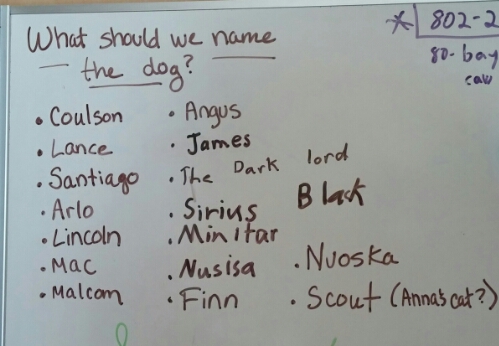 What should we name
the dog?
* 802-2
80-bay
caw
• Coulson
• Lance
• Santiago
• Arlo
• Lincoln
• Mac
• Malcom
• Angus
• James
• The Dark lord
• Sirius Black
• Minitar
• Nusisa
• Finn
• Nuoska
• Scout (Anna's cat?)